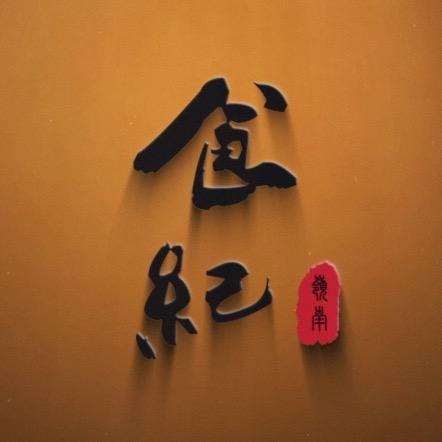 食
紀
嶺南